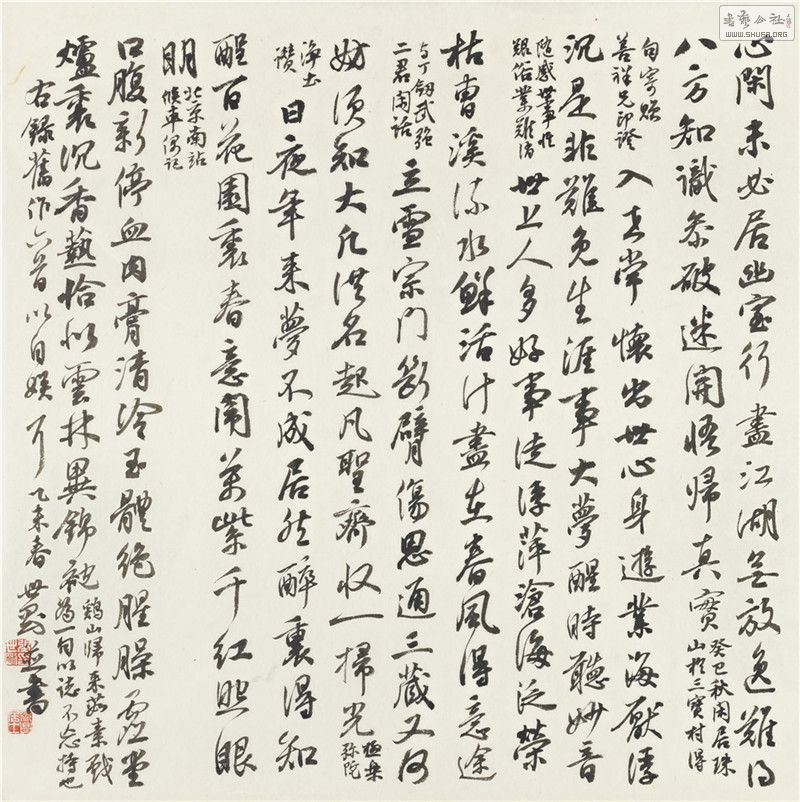 書藝公社
心閑未必居幽室行盡江湖無放逸難得
八方知識參破迷開悟歸真實
癸巳秋閑居珠
山於三寶村得
句寄贈
善祥兄印證
入古常懷出世心身遊業海厭浮
沉是非難免生涯事大夢醒時聽妙音
隨感世事惟
艱俗業難消
世上人多好事徒浮萍滄海泛榮
枯曹溪流水鮮活計盡在春風得意途
與丁劍武強
二君閑話
立雪宗門斷臂傷思通三藏又何
妨須知大凡洪名起凡聖齊收一掃光
極樂
弥陀
淨土
讚
日夜年來夢不成居然醉裏得知
醒百花園裏春意鬧萬紫千红照眼
明
北京南站
候車偶記
口腹新停血肉膏清冷玉體絕腥臊虛堂
爐裊沉香爇恰似雲林異錦袍
鷄山歸來
為一句以誌不忘持也
右錄舊作六首以自娛耳
乙未春世書